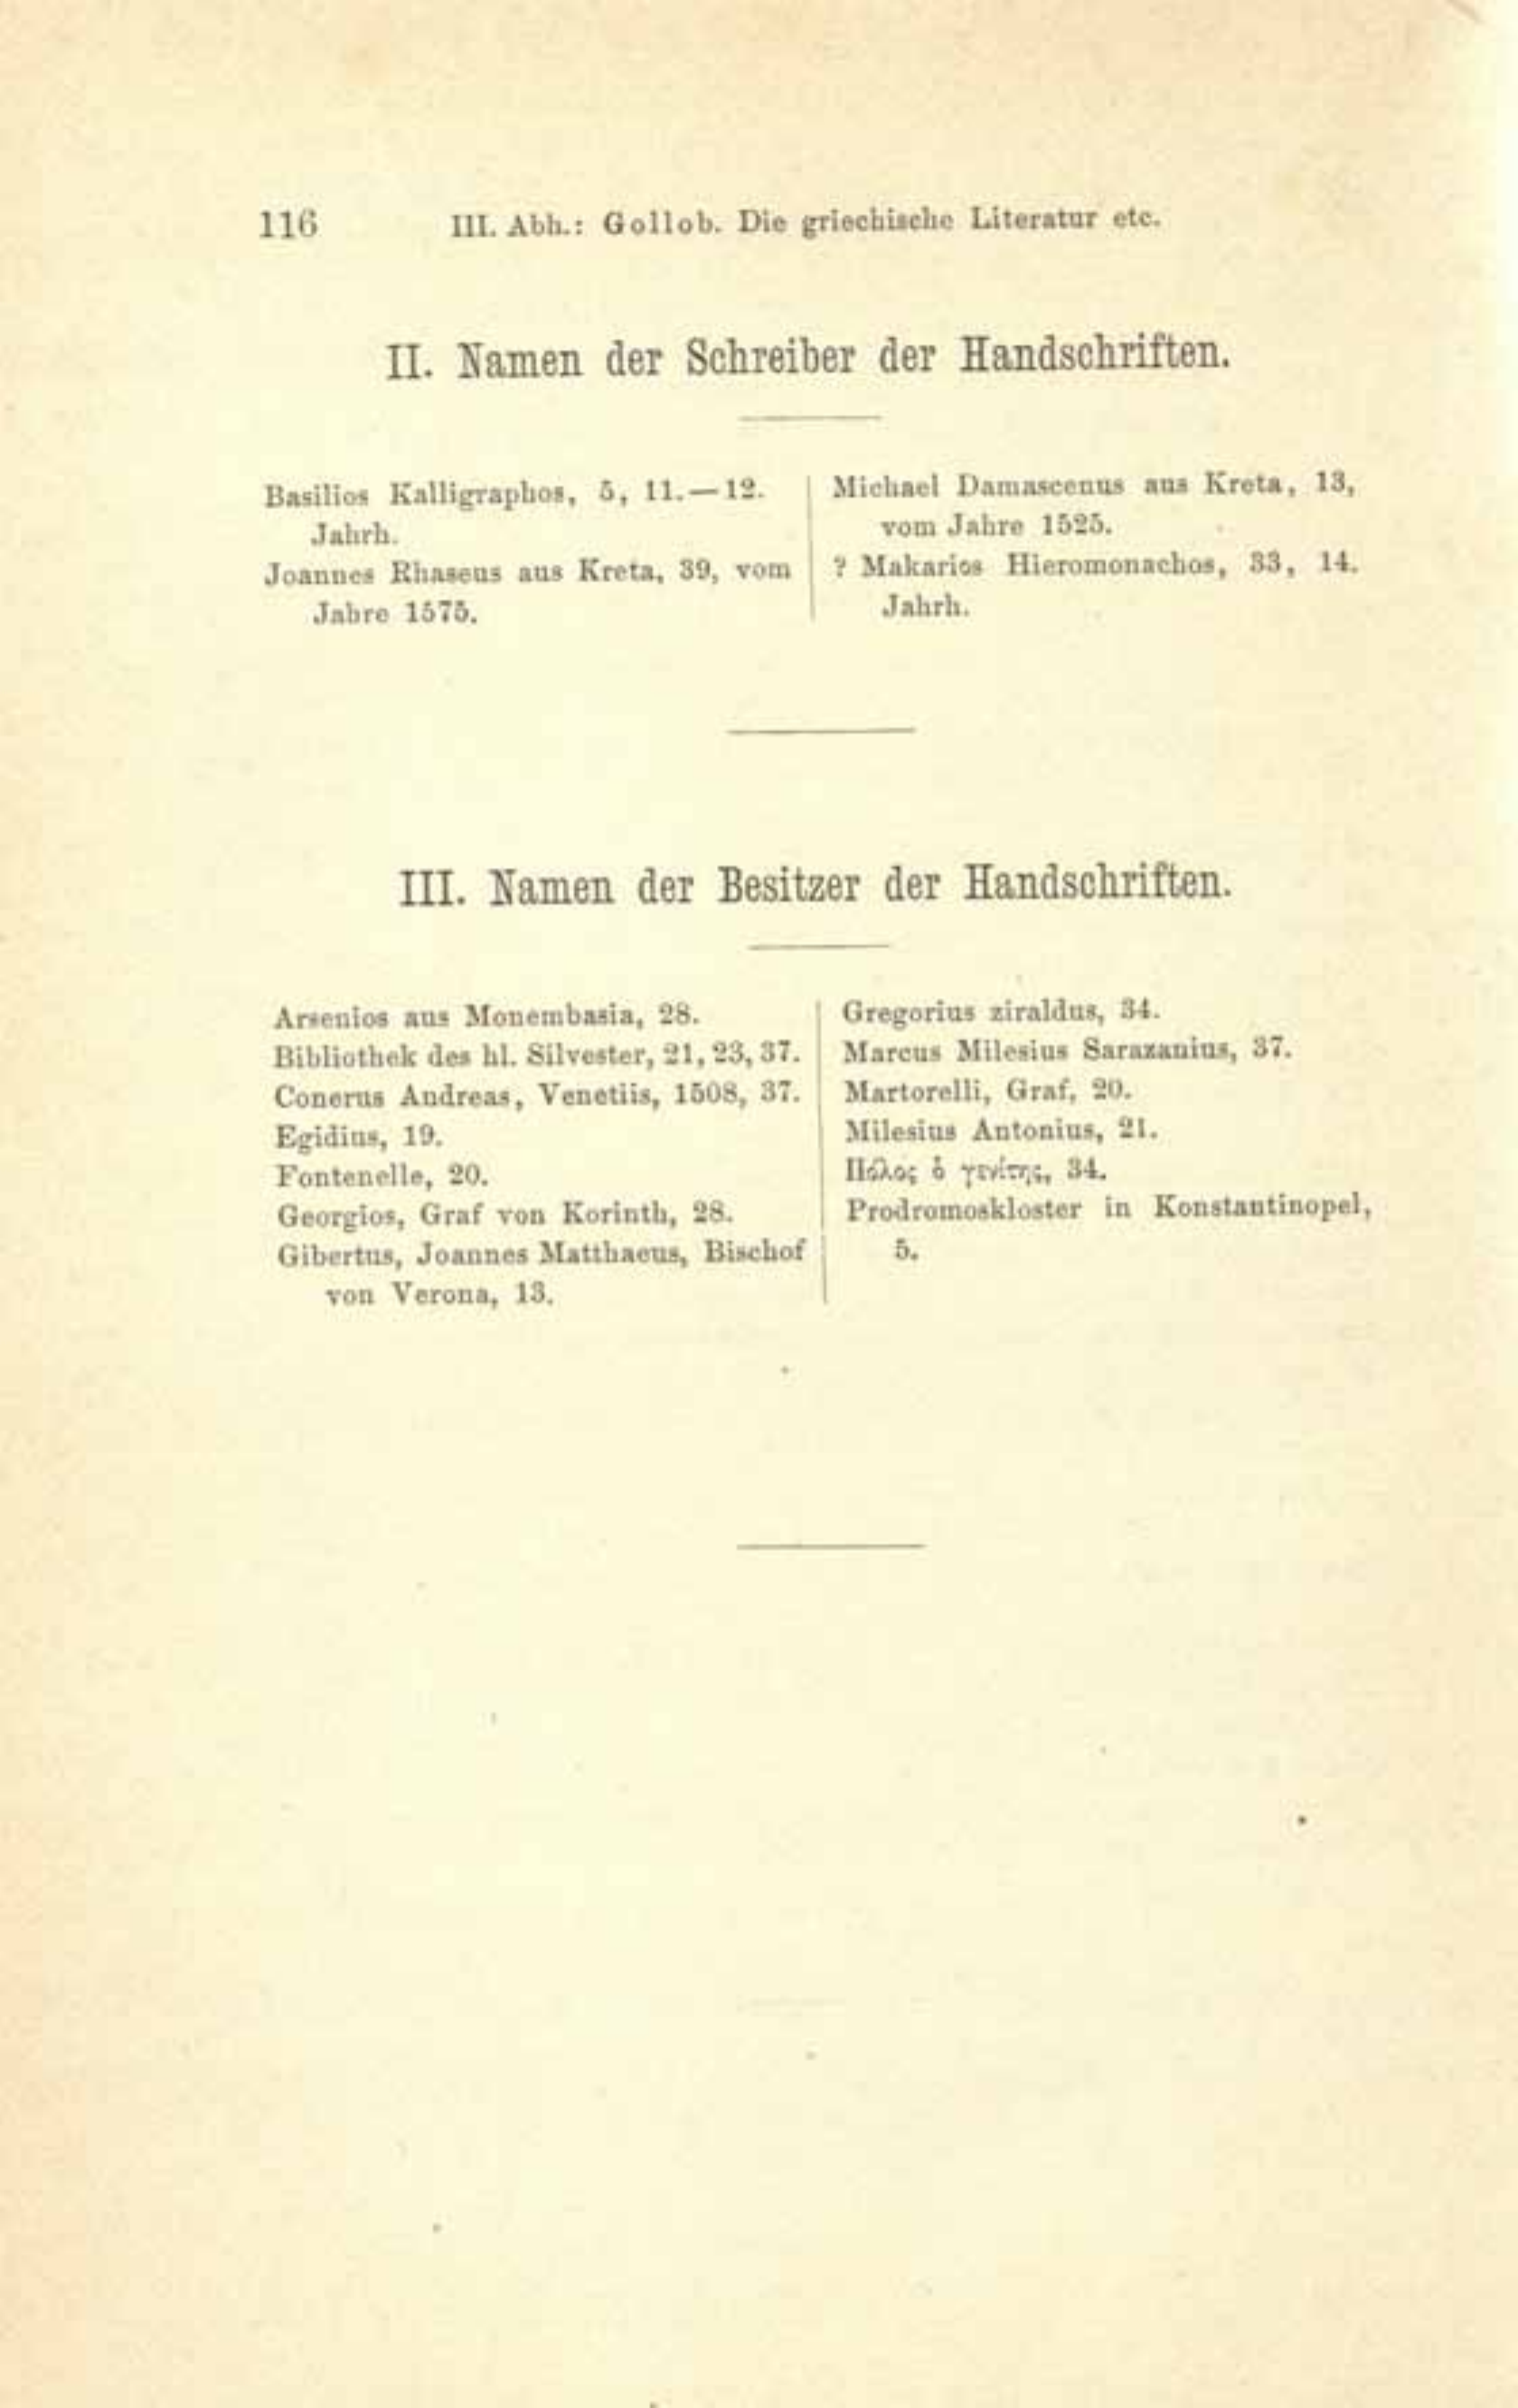 116 III. Abh.: Gollob. Die griechische Literatur etc.
II. Namen der Schreiber der Handschriften.
Basilios Kalligraphos, 5, 11.—12.
Jahrh.
Joannes Rhaseus aus Kreta, 39, vom
Jahre 1575.
Michael Damascenus aus Kreta, 13,
vom Jahre 1525.
? Makarios Hieromonachos, 33, 14.
Jahrh.
III. Namen der Besitzer der Handschriften.
Arsenios aus Monembasia, 28.
Bibliothek des hl. Silvester, 21, 23, 37.
Conerus Andreas, Venetiis, 1508, 37.
Egidius, 19.
Fontenelle, 20.
Georgios, Graf von Korinth, 28.
Gibertus, Joannes Matthaeus, Bischof
von Verona, 13.
Gregorius ziraldus, 34.
Marcus Milesius Sarazanius, 37.
Martorelli, Graf, 20.
Milesius Antonius, 21.
ὁ 34.
Prodromoskloster in Konstantinopel,
5.